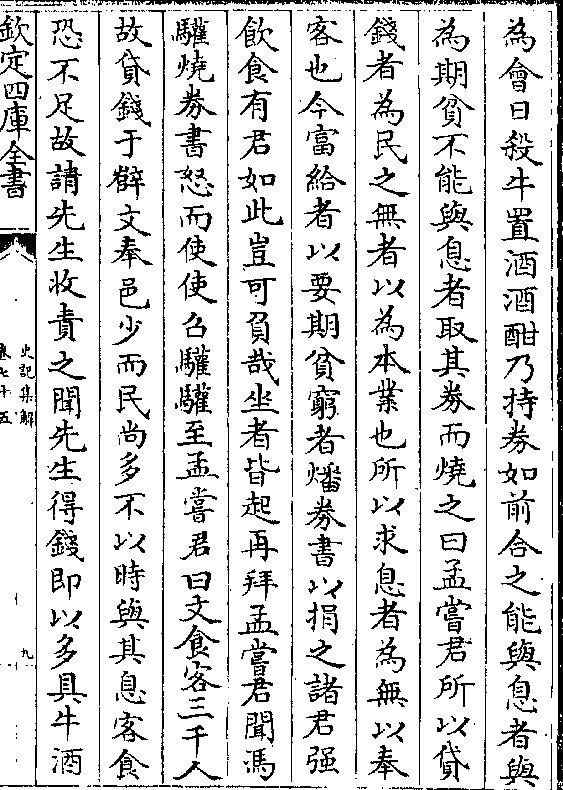 為會日殺牛置酒酒酣乃持券如前合之能與息者與
為期貧不能與息者取其券而燒之曰孟嘗君所以貸
錢者為民之無者以為本業也所以求息者為無以奉
客也今富給者以要期貧窮者燔券書以捐之諸君强
飲食有君如此豈可負哉坐者皆起再拜孟嘗君聞馮
驩燒券書怒而使使召驩驩至孟嘗君曰文食客三千人
故貸錢于薛文奉邑少而民尚多不以時與其息客食
恐不足故請先生收責之聞先生得錢即以多具牛酒
欽定四庫全書
史記集解
卷七十五
九